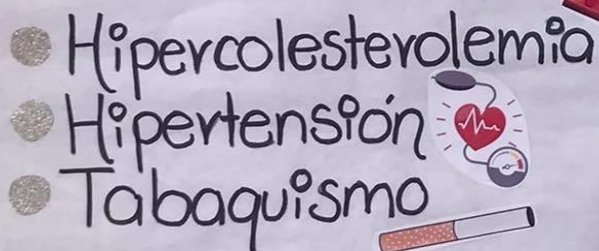 Hipercolesterolemia
Hipertensión
Tabaquismo